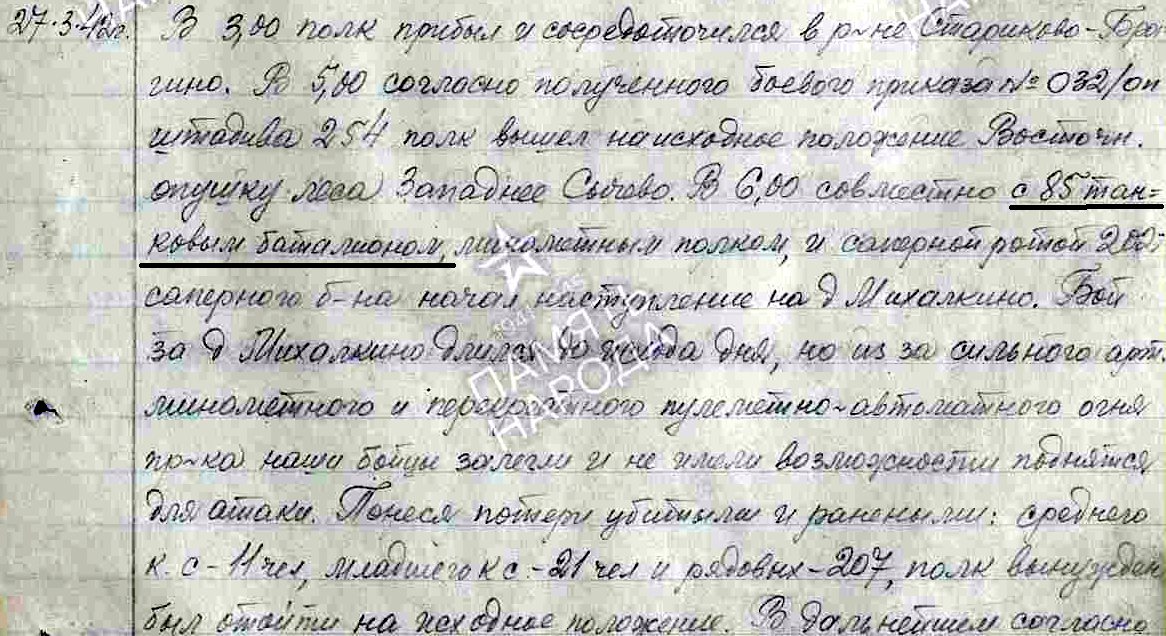 27.3.42г. В 3,00 полк прибыл и сосредоточился в р-не Стариково-Бра-
гино. В 5,00 согласно полученного боевого приказа № 032/оп
штадива 254 полк вышел на исходное положение Восточн.
опушку леса Западнее Сычево. В 6,00 совместно с 85 тан-
ковым баталионом, минометным полком, и саперной ротой 202
саперного б-на начал наступление на д Михалкино. Бой
за д Михалкино длился до исхода дня, но из за сильного арт
минометного и перекрестного пулеметно-автоматного огня
пр-ка наши бойцы залегли и не имели возможности поднятся
для атаки. Понеся потери убитыми и ранеными: среднего
к. с - 11 чел, младшего к с - 21 чел и рядовых - 207, полк вынужден
был отойти на исходное положение. В дальнейшем согласно
ПАМЯТЬ
НАРОДА